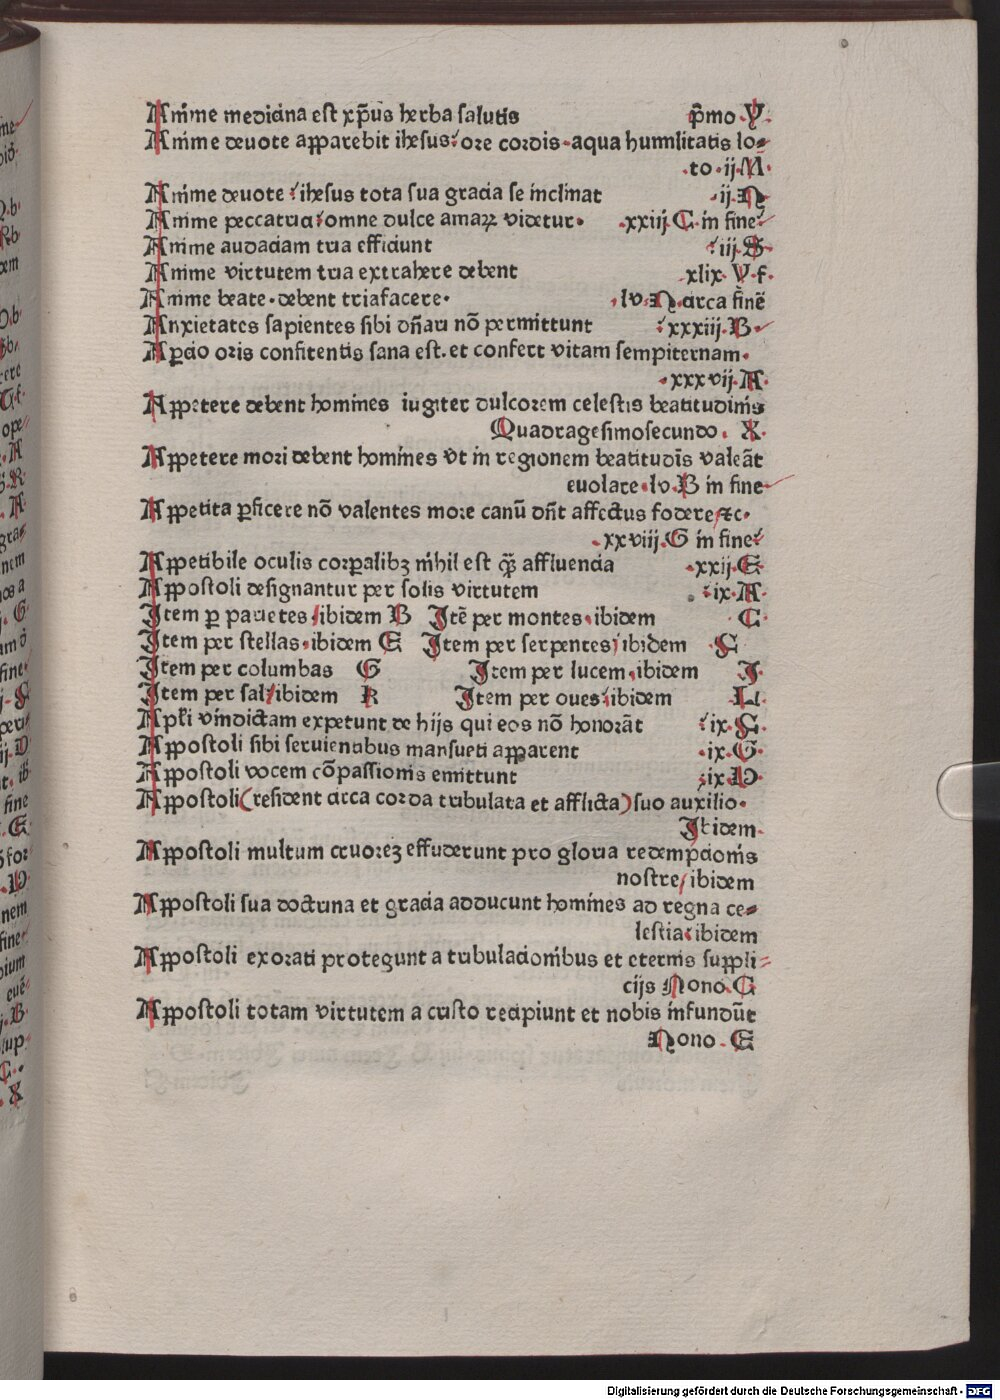 Anime medicina est xp̃us herba salutis p̃mo·V·
Anime deuote apparebit ihesus: ore cordis·aqua humilitatis lo⸗
·to·ij·M·
Anime deuote: ihesus tota sua gracia se inclinat ·ij·N
Anime peccatrici: omne dulce amaꝝ videtur· ·xxiij·C·in fine
Anime audaciam tria efficiunt :iij·S·
Anime virtutem tria extrahere debent ·xlix·V·f·
Anime beate·debent tria facere· ·lv·N·circa finẽ
Anxietates sapientes sibi dñari nõ permittunt :xxxiij·B·
Apcio oris confitentis sana est. et confert vitam sempiternam·
·xxxvij·A·
Appetere debent homines iugiter dulcorem celestis beatitudinis
Quadragesimosecundo· X·
Appetere mori debent homines vt in regionem beatitudĩs valeãt
euolare·lv·B in fine
Appetita ꝑficere nõ valentes more canũ dñt affectus fodere ⁊c·
·xxviij·G in fine
Appetibile oculis corꝑalibꝫ nihil est q̃ȝ affluencia ·xxij·E·
Appostoli designantur per solis virtutem :ix·A·
Item ꝑ parietes/ibidem B Itẽ per montes·ibidem C·
Item per stellas·ibidem E Item per serpentes/ibidem ·F
Item per columbas G Item per lucem·ibidem I·
Item per sal/ibidem K Item per oues/ibidem L·
Apl̃i vindictam expetunt de hijs qui eos nõ honorãt :ix·F·
Appostoli sibi seruientibus mansueti apparent ·ix·G·
Appostoli vocem cõpassionis emittunt :ix·D·
Appostoli(resident circa corda tribulata et afflicta)suo auxilio·
Ibidem·
Appostoli multum cruoreȝ effuderunt pro gloria redempcionis
nostre/ibidem
Appostoli sua doctrina et gracia adducunt homines ad regna ce⸗
lestia:ibidem
Appostoli exorati protegunt a tribulacionibus et eternis suppli⸗
cijs Nono·G
Appostoli totam virtutem a cristo recipiunt et nobis infundũt
Nono·E
Digitalisierung gefördert durch die Deutsche Forschungsgemeinschaft - DFG